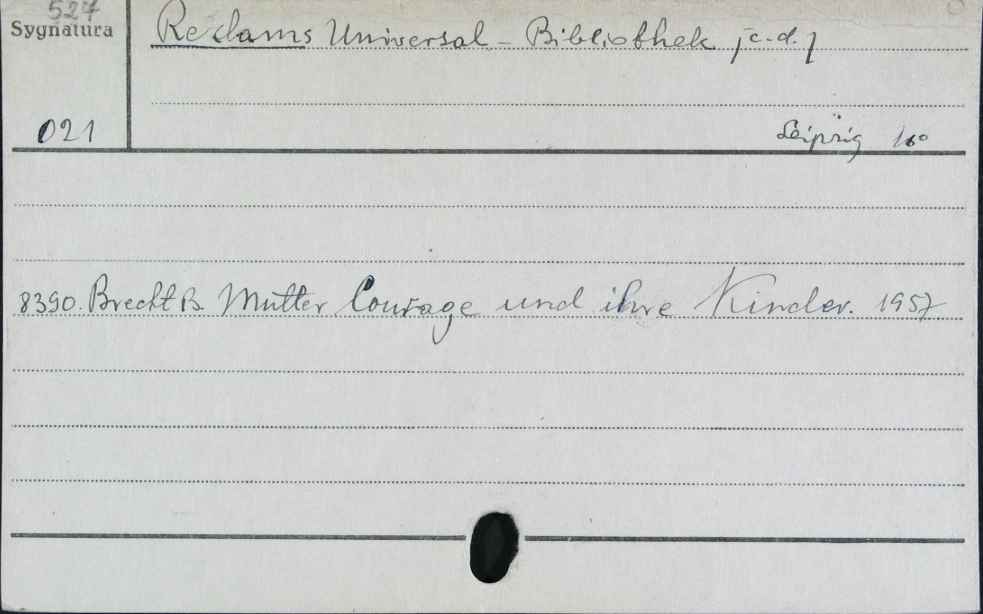 527
Sygnatura
Reclams Universal - Bibliothek [c.d.]
021
Leipzig 16°
8390. Brecht B. Mutter Courage und ihre Kinder. 1957